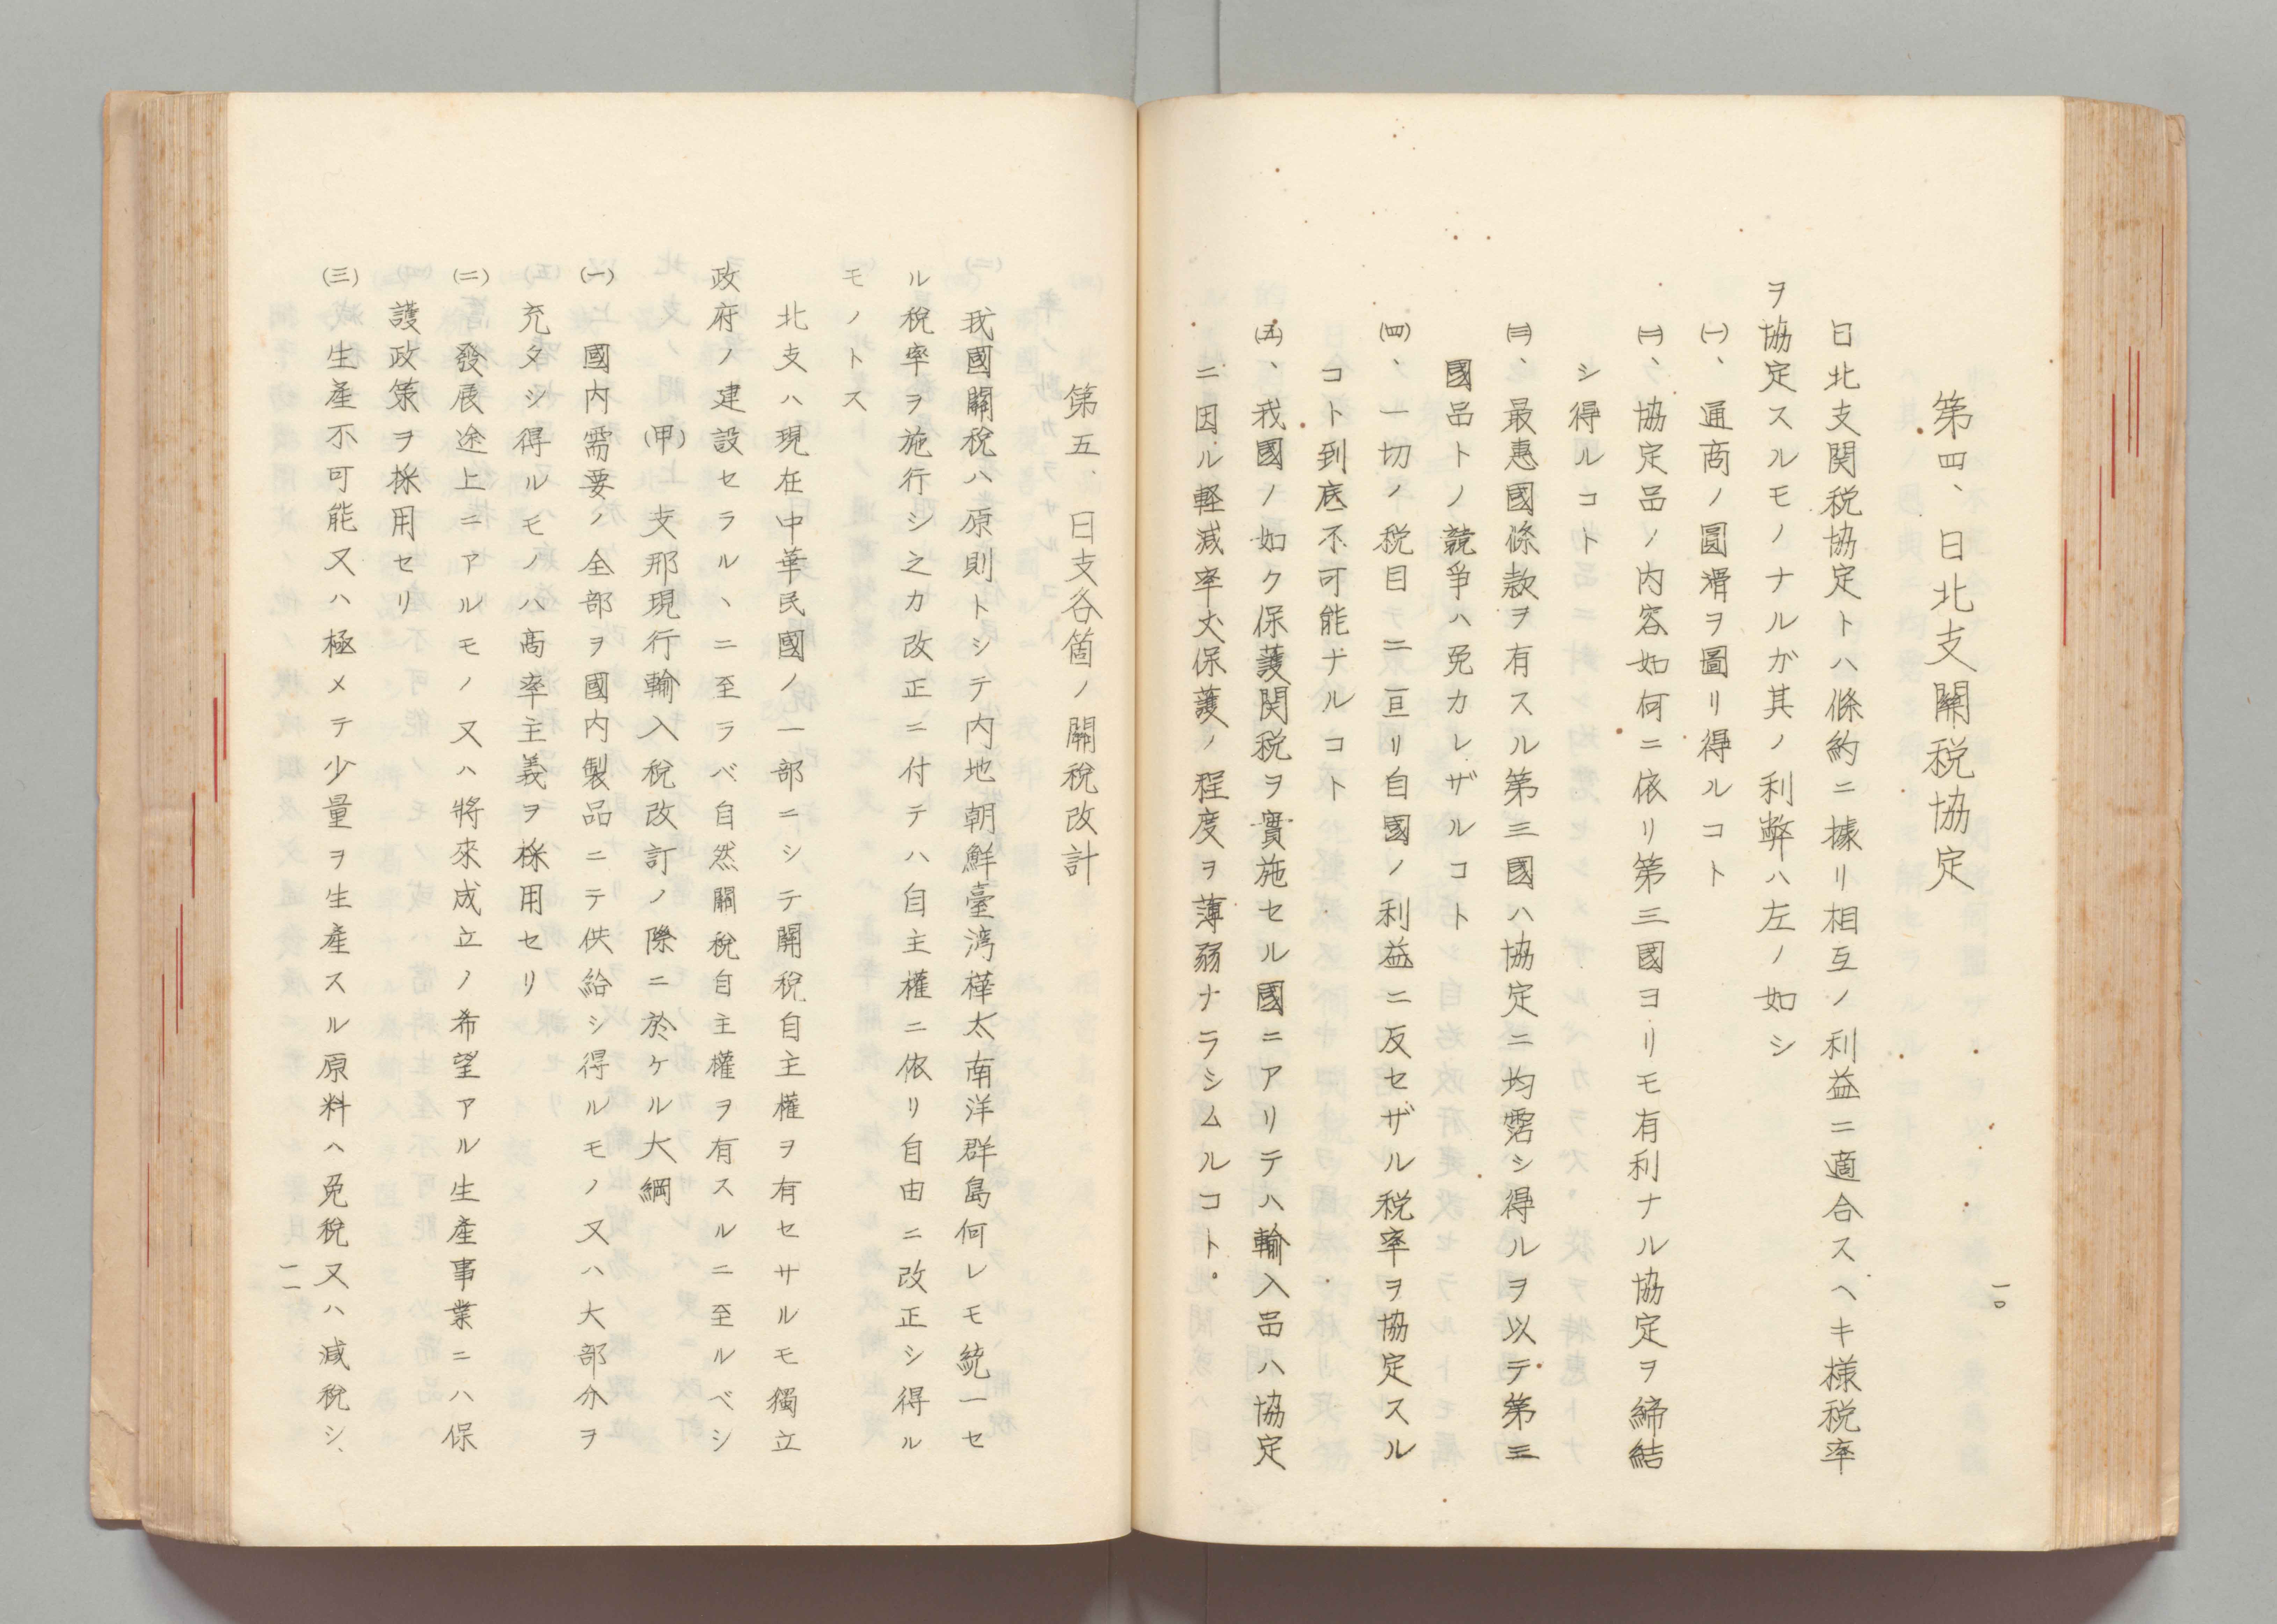 第四、日北支關税協定
日北支関税協定トハ條約ニ據リ相互ノ利益ニ適合スヘキ様税率
ヲ協定スルモノナルガ其ノ利弊ハ左ノ如シ
㈠、通商ノ圓滑ヲ圖リ得ルコト
㈡、協定品ノ内容如何ニ依リ第三國ヨリモ有利ナル協定ヲ締結
シ得ルコト
㈢、最惠國條款ヲ有スル第三國ハ協定ニ均霑シ得ルヲ以テ第三
國品トノ競爭ハ免カレザルコト
㈣、一切ノ税目ニ亘リ自國ノ利益ニ反セザル税率ヲ協定スル
コト到底不可能ナルコト
㈤、我國ノ如ク保護関税ヲ實施セル國ニアリテハ輸入品ハ協定
ニ因ル軽減率丈保護ノ程度ヲ薄弱ナラシムルコト。
一〇
第五、日支各箇ノ關税改計
我國關稅ハ原則トシテ内地朝鮮臺湾樺太南洋群島何レモ統一セ
ル稅率ヲ施行シ之カ改正ニ付テハ自主權ニ依リ自由ニ改正シ得ル
モノトス
北支ハ現在中華民國ノ一部ニシテ關稅自主權ヲ有セサルモ獨立
政府ノ建設セラルヽニ至ラバ自然關稅自主權ヲ有スルニ至ルベシ
(甲)支那現行輸入稅改訂ノ際ニ於ケル大綱
㈠國内需要ノ全部ヲ國内製品ニテ供給シ得ルモノ又ハ大部分ヲ
充タシ得ルモノハ高率主義ヲ採用セリ
㈡發展途上ニアルモノ又ハ將來成立ノ希望アル生產事業ニハ保
護政策ヲ採用セリ
㈢生產不可能又ハ極メテ少量ヲ生產スル原料ヘ免稅又ハ減稅シ、
一一